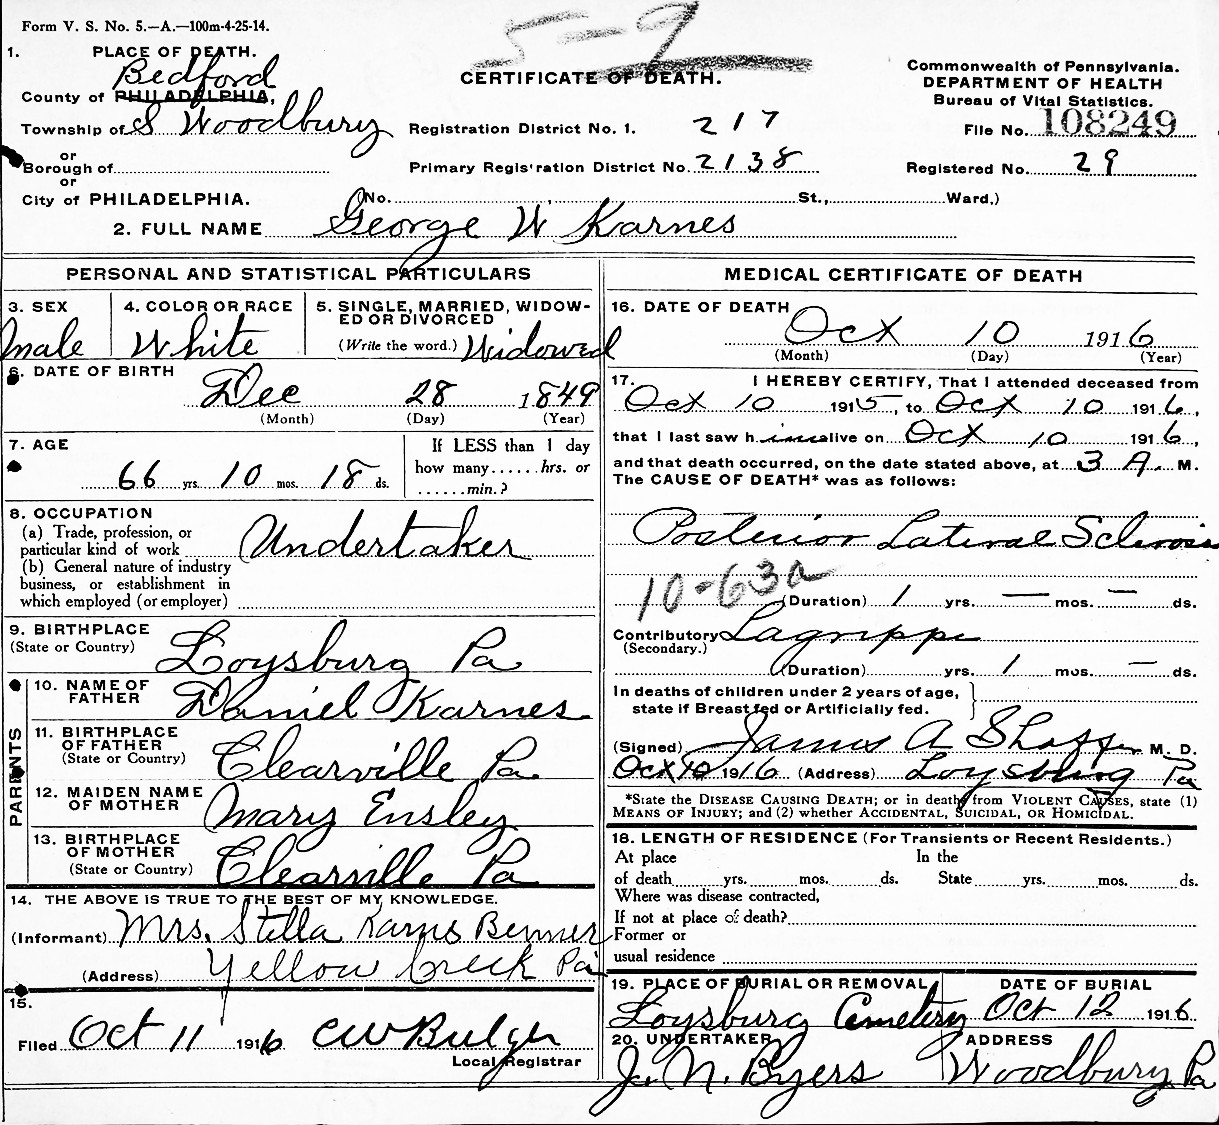 Form V. S. No. 5.—A.—100m-4-25-14.
5-9
1. PLACE OF DEATH.
CERTIFICATE OF DEATH.
Commonwealth of Pennsylvania.
DEPARTMENT OF HEALTH
Bureau of Vital Statistics.
Bedford
County of PHILADELPHIA,
Township of S Woodbury
Registration District No. 1. 217
File No. 108249
or
Borough of
Primary Registration District No. 2138
Registered No. 29
or
City of PHILADELPHIA. (No. , St., Ward.)
2. FULL NAME George W Karnes
PERSONAL AND STATISTICAL PARTICULARS
3. SEX
Male
4. COLOR OR RACE
White
5. SINGLE, MARRIED, WIDOW-
ED OR DIVORCED
(Write the word.) Widowed
6. DATE OF BIRTH
Dec 28 1849
(Month) (Day) (Year)
7. AGE
66 yrs. 10 mos. 18 ds.
If LESS than 1 day
how many...... hrs. or
...... min.?
8. OCCUPATION
(a) Trade, profession, or
particular kind of work Undertaker
(b) General nature of industry
business, or establishment in
which employed (or employer)
9. BIRTHPLACE
(State or Country) Loysburg Pa
PARENTS
10. NAME OF
FATHER Daniel Karnes
11. BIRTHPLACE
OF FATHER
(State or Country) Clearville Pa
12. MAIDEN NAME
OF MOTHER Mary Ensley
13. BIRTHPLACE
OF MOTHER
(State or Country) Clearville Pa
14. THE ABOVE IS TRUE TO THE BEST OF MY KNOWLEDGE.
(Informant) Mrs. Stella Karns
(Address) Yellow Creek Pa
15.
Filed Oct 11 1916 CW Bulger
Local Registrar
MEDICAL CERTIFICATE OF DEATH
16. DATE OF DEATH
Oct 10 1916
(Month) (Day) (Year)
17. I HEREBY CERTIFY, That I attended deceased from
Oct 10 1915, to Oct 10 1916,
that I last saw him alive on Oct 10 1916,
and that death occurred, on the date stated above, at 3 A. M.
The CAUSE OF DEATH* was as follows:
Posterior Lateral Sclerosis
10-63a
(Duration) 1 yrs. — mos. — ds.
Contributory Lagrippe
(Secondary.)
(Duration) yrs. 1 mos. — ds.
In deaths of children under 2 years of age,
state if Breast fed or Artificially fed.
(Signed) James A Shaffer M. D.
Oct 10 1916 (Address) Loysburg Pa
*State the DISEASE CAUSING DEATH; or in death from VIOLENT CAUSES, state (1)
MEANS OF INJURY; and (2) whether ACCIDENTAL, SUICIDAL, OR HOMICIDAL.
18. LENGTH OF RESIDENCE (For Transients or Recent Residents.)
At place In the
of death yrs. mos. ds. State yrs. mos. ds.
Where was disease contracted,
If not at place of death?
Former or
usual residence
19. PLACE OF BURIAL OR REMOVAL
Loysburg Cemetery
DATE OF BURIAL
Oct 12 1916
20. UNDERTAKER
J. N. Byers
ADDRESS
Woodbury Pa